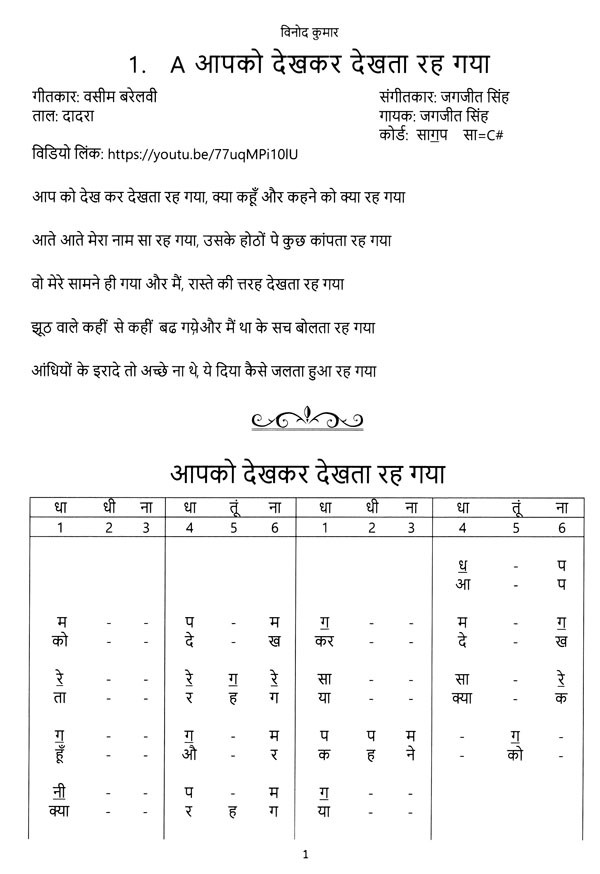 विनोद कुमार
1. A आपको देखकर देखता रह गया
गीतकार: वसीम बरेलवी
संगीतकार: जगजीत सिंह
ताल: दादरा
गायक: जगजीत सिंह
कोर्ड: साग॒प सा=C#
विडियो लिंक: https://youtu.be/77uqMPi10lU
आप को देख कर देखता रह गया, क्या कहूँ और कहने को क्या रह गया
आते आते मेरा नाम सा रह गया, उसके होठों पे कुछ कांपता रह गया
वो मेरे सामने ही गया और मैं, रास्ते की त्तरह देखता रह गया
झूठ वाले कहीं से कहीं बढ गये़और मैं था के सच बोलता रह गया
आंधियों के इरादे तो अच्छे ना थे, ये दिया कैसे जलता हुआ रह गया
आपको देखकर देखता रह गया
धा धी ना धा तूं ना धा धी ना धा तूं ना
1 2 3 4 5 6 1 2 3 4 5 6
ध॒ - प
आ - प
म - - प - म ग॒ - - म - ग॒
को - - दे - ख कर - - दे - ख
रे॒ - - रे॒ ग॒ रे॒ सा - - सा - रे॒
ता - - र ह ग या - - क्या - क
ग॒ - - ग॒ - म प प म - ग॒ -
हूँ - - औ - र क ह ने - को -
नी॒ - - प - म ग॒ - -
क्या - - र ह ग या - -
1